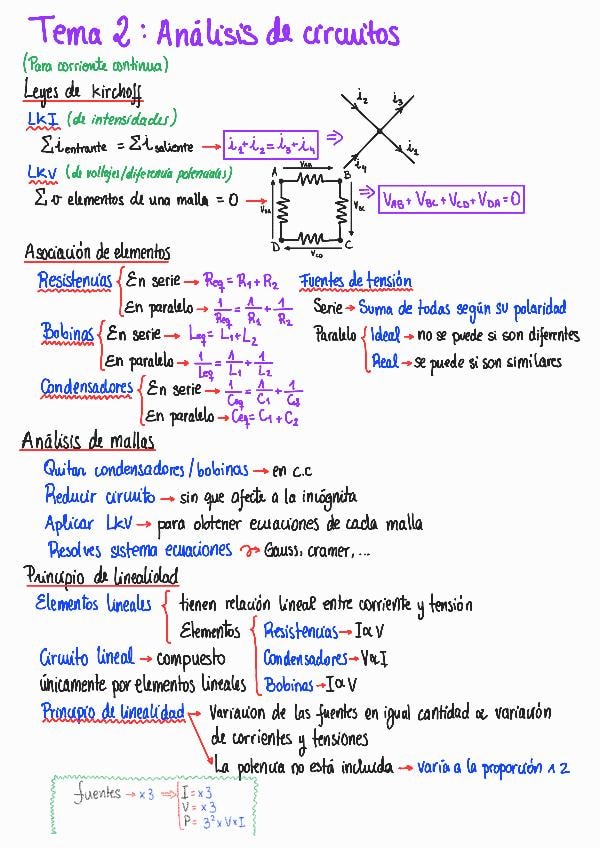 Tema 2: Análisis de circuitos
(Para corriente continua)
Leyes de Kirchoff
LKI (de intensidades)
Σ i entrante = Σ i saliente → i₁+i₂=i₃+i₄ ⇒
i₂ i₃ i₁ i₄
LKV (de voltajes/diferencia potenciales)
Σ v elementos de una malla = 0 →
A V_AB B
V_DA V_BC
D V_CD C
⇒ V_AB + V_BC + V_CD + V_DA = 0
Asociación de elementos
Resistencias { En serie → Req = R₁+R₂
En paralelo → 1/Req = 1/R₁ + 1/R₂
Bobinas { En serie → Leq = L₁+L₂
En paralelo → 1/Leq = 1/L₁ + 1/L₂
Condensadores { En serie → 1/Ceq = 1/C₁ + 1/C₂
En paralelo → Ceq = C₁+C₂
Fuentes de tensión
Serie → Suma de todas según su polaridad
Paralelo { Ideal → no se puede si son diferentes
Real → se puede si son similares
Análisis de mallas
Quitar condensadores/bobinas → en c.c
Reducir circuito → sin que afecte a la incógnita
Aplicar LkV → para obtener ecuaciones de cada malla
Resolves sistema ecuaciones → Gauss, cramer, ...
Principio de linealidad
Elementos lineales { tienen relación lineal entre corriente y tensión
Elementos { Resistencias → I∝V
Condensadores → V∝I
Bobinas → I∝V
Circuito lineal → compuesto
únicamente por elementos lineales
Principio de linealidad → Variacion de las fuentes en igual cantidad ∝ variación
de corrientes y tensiones
La potencia no está incluida → varía a la proporción ^ 2
fuentes → x3 ⇒ { I = x3
V = x3
P = 3² x V x I